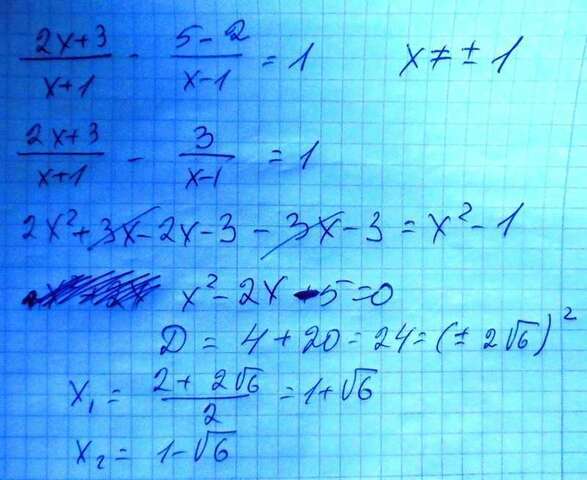 (2x+3)/(x+1) - (5-2)/(x-1) = 1    x ≠ ± 1
(2x+3)/(x+1) - 3/(x-1) = 1
2x² + 3x - 2x - 3 - 3x - 3 = x² - 1
x² - 2x - 5 = 0
D = 4 + 20 = 24 = (± 2√6)²
x₁ = (2 + 2√6)/2 = 1 + √6
x₂ = 1 - √6